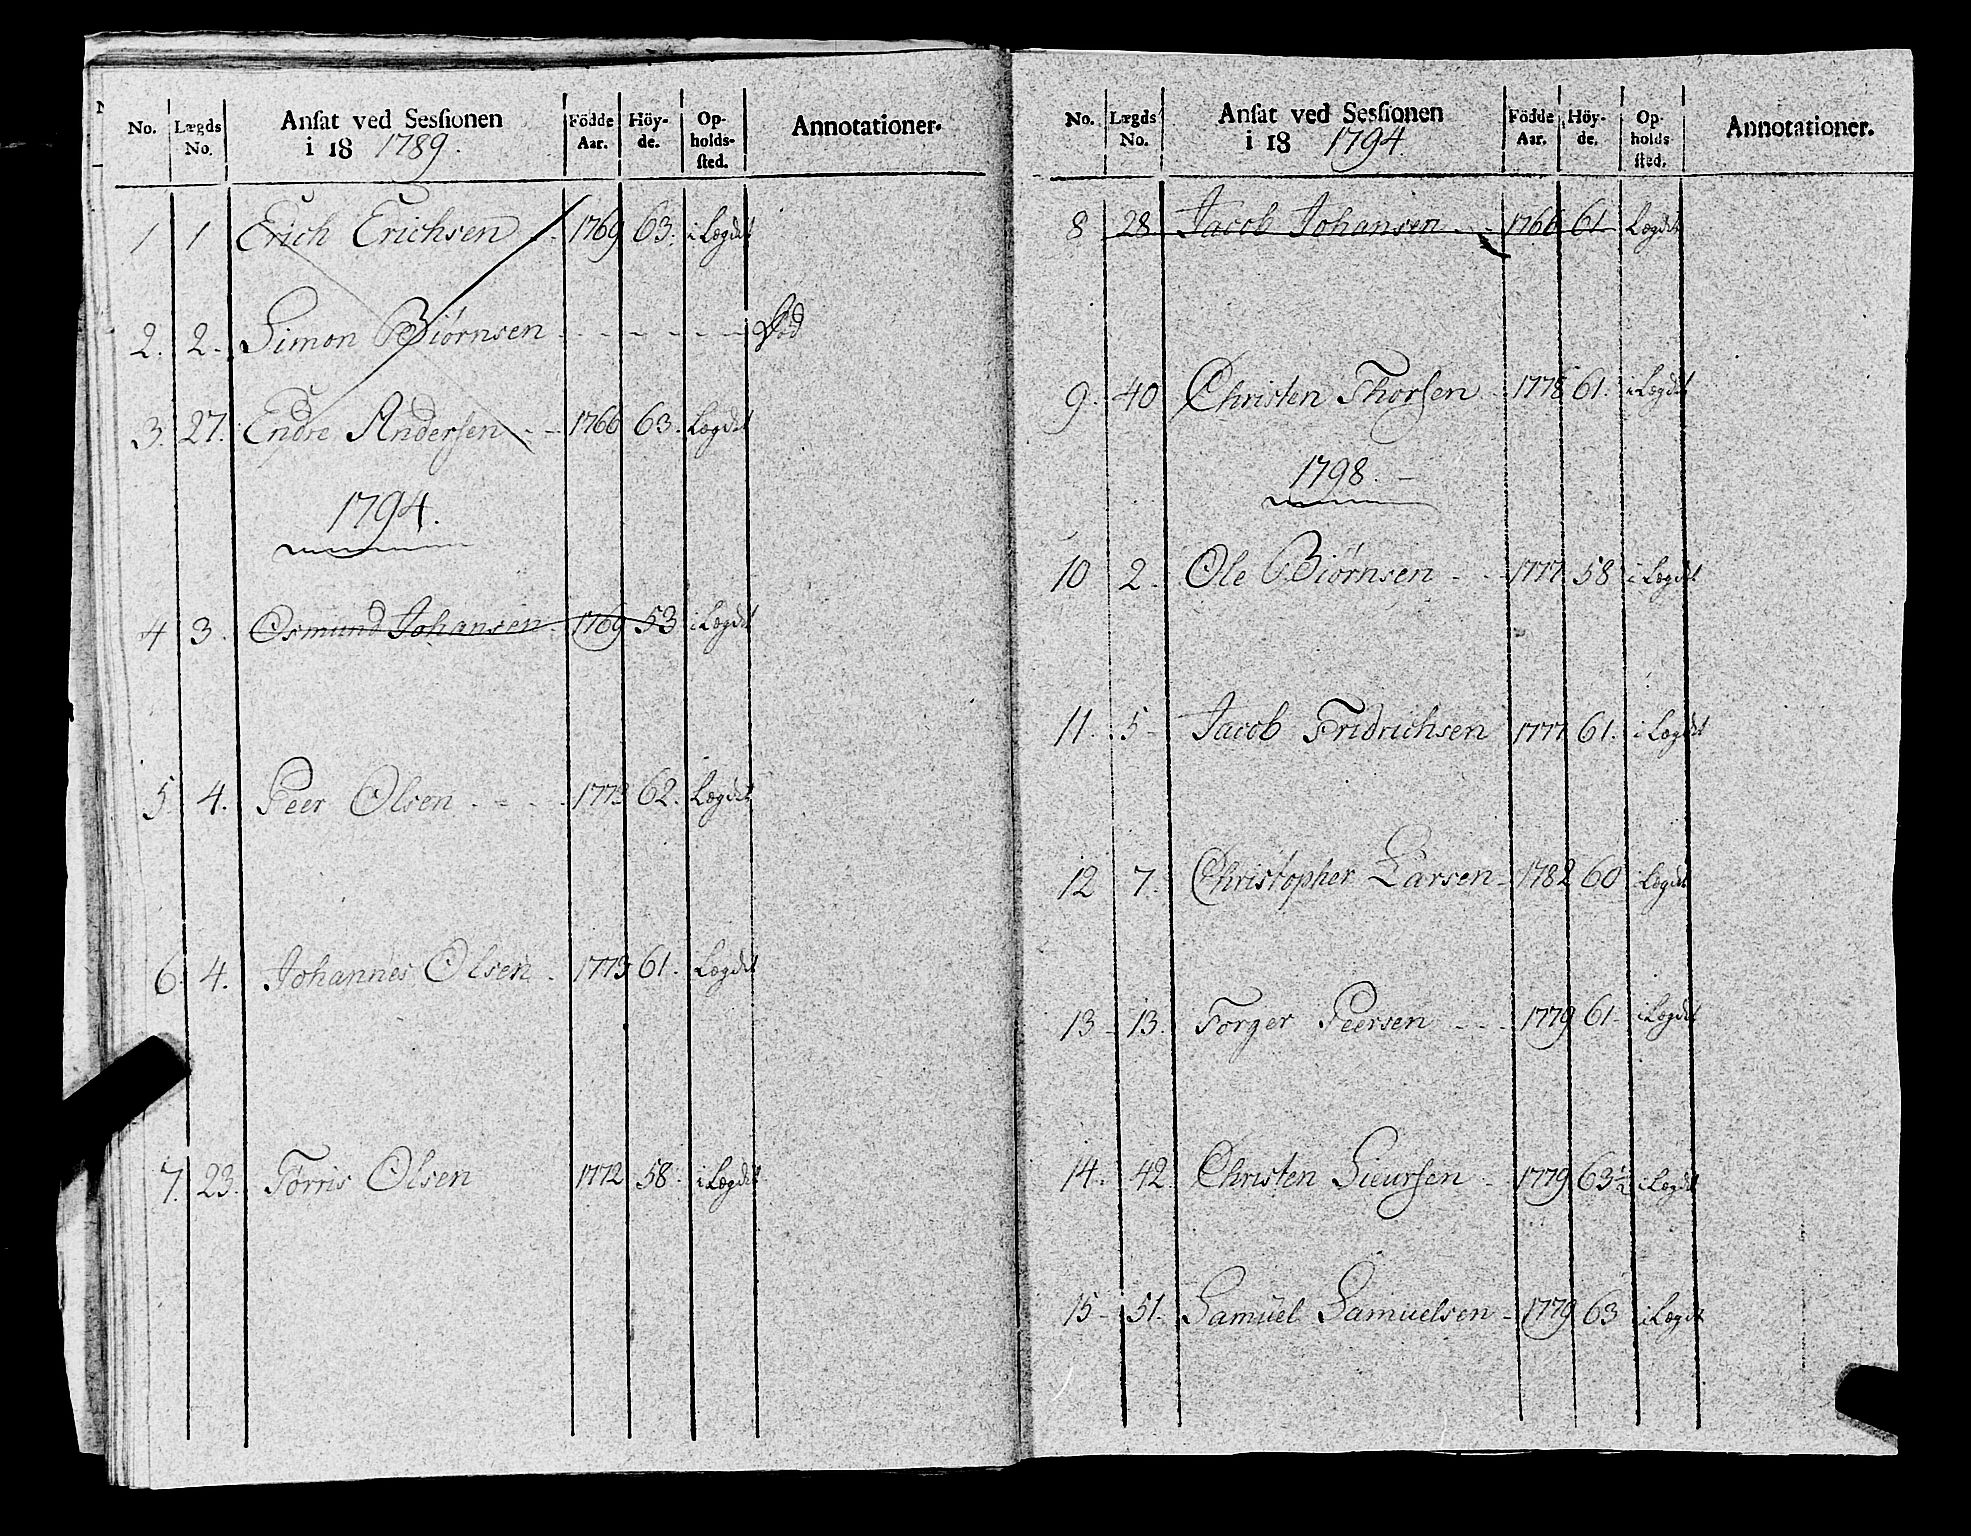 No. Lægds No. Ansat ved Sessionen i 18 1789. Födde Aar. Höy- de. Op- holds- sted. Annotationer.
1 1 Erich Erichsen 1769 63. i Lægdet
2. 2. Simon Biørnsen - - - - - - Død
3. 27. Endre Andersen - - 1766 63. Lægdet
1794.
4 3. Osmund Johansen 1769 53 i Lægdet
5. 4. Peer Olsen - - - 1773 62. Lægdet
6. 4. Johannes Olsen - 1773 61. Lægdet
7. 23. Tørris Olsen 1772 58. i Lægdet
No. Lægds No. Ansat ved Sessionen i 18 1794 Födde Aar. Höy- de. Op- holds sted. Annotationer.
8 28 Jacob Johansen - - 1766 61 Lægdet
9. 40 Christen Thorsen - 1778 61. i Lægdet
1798. -
10 2. Ole Biørnsen - - 1777 58 i Lægdet
11. 5 Jacob Fridrichsen 1777 61. i Lægdet
12 7. Christopher Larsen - 1782 60 i Lægdet
13 - 13. Torger Peersen - - - 1779 61 - i Lægdet
14. 42 Christen Sieursen - 1779 63½ i Lægdet
15 - 51. Samuel Samuelsen - 1779 63 i Lægdet